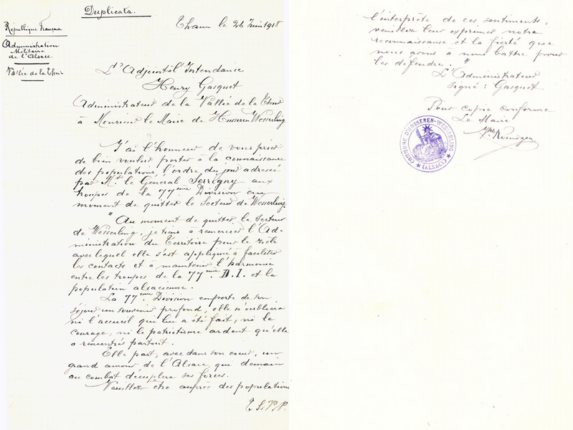 Duplicata.
République Française
Administration
Militaire
de l'Alsace
Vallée de la Thur
Thann le 24 Juin 1918
L'Adjoint à l'Intendance
Henry Gasquet
Administrateur de la Vallée de la Thur
à Monsieur le Maire de Husseren-Wesserling
J'ai l'honneur de vous prier
de bien vouloir porter à la connaissance
des populations, l'ordre du jour adressé
par M. le Général Serrigny aux
troupes de la 77ème Division au
moment de quitter le Secteur de Wesserling.
"Au moment de quitter le Secteur
de Wesserling, je tiens à remercier l'Ad-
ministration du Territoire pour le zèle
avec lequel elle s'est appliquée à faciliter
les contacts et à maintenir l'harmonie
entre les troupes de la 77ème D.I. et la
population alsacienne.
La 77ème Division emporte de son
séjour un souvenir profond, elle n'oubliera
ni l'accueil qui lui a été fait, ni le
courage, ni le patriotisme ardent qu'elle
a rencontrés partout.
Elle part, avec dans son cœur, un
grand amour de l'Alsace qui demain
au combat décuplera ses forces.
Veuillez être auprès des populations
T.S.V.P.
l'interprète de ces sentiments,
veuillez leur exprimer notre
reconnaissance et la fierté que
nous avons à nous battre pour
les défendre."
L'Administrateur
Signé : Gasquet
Pour copie conforme
Le Maire
COMMUNE D'HUSSEREN-WESSERLING
(ALSACE)